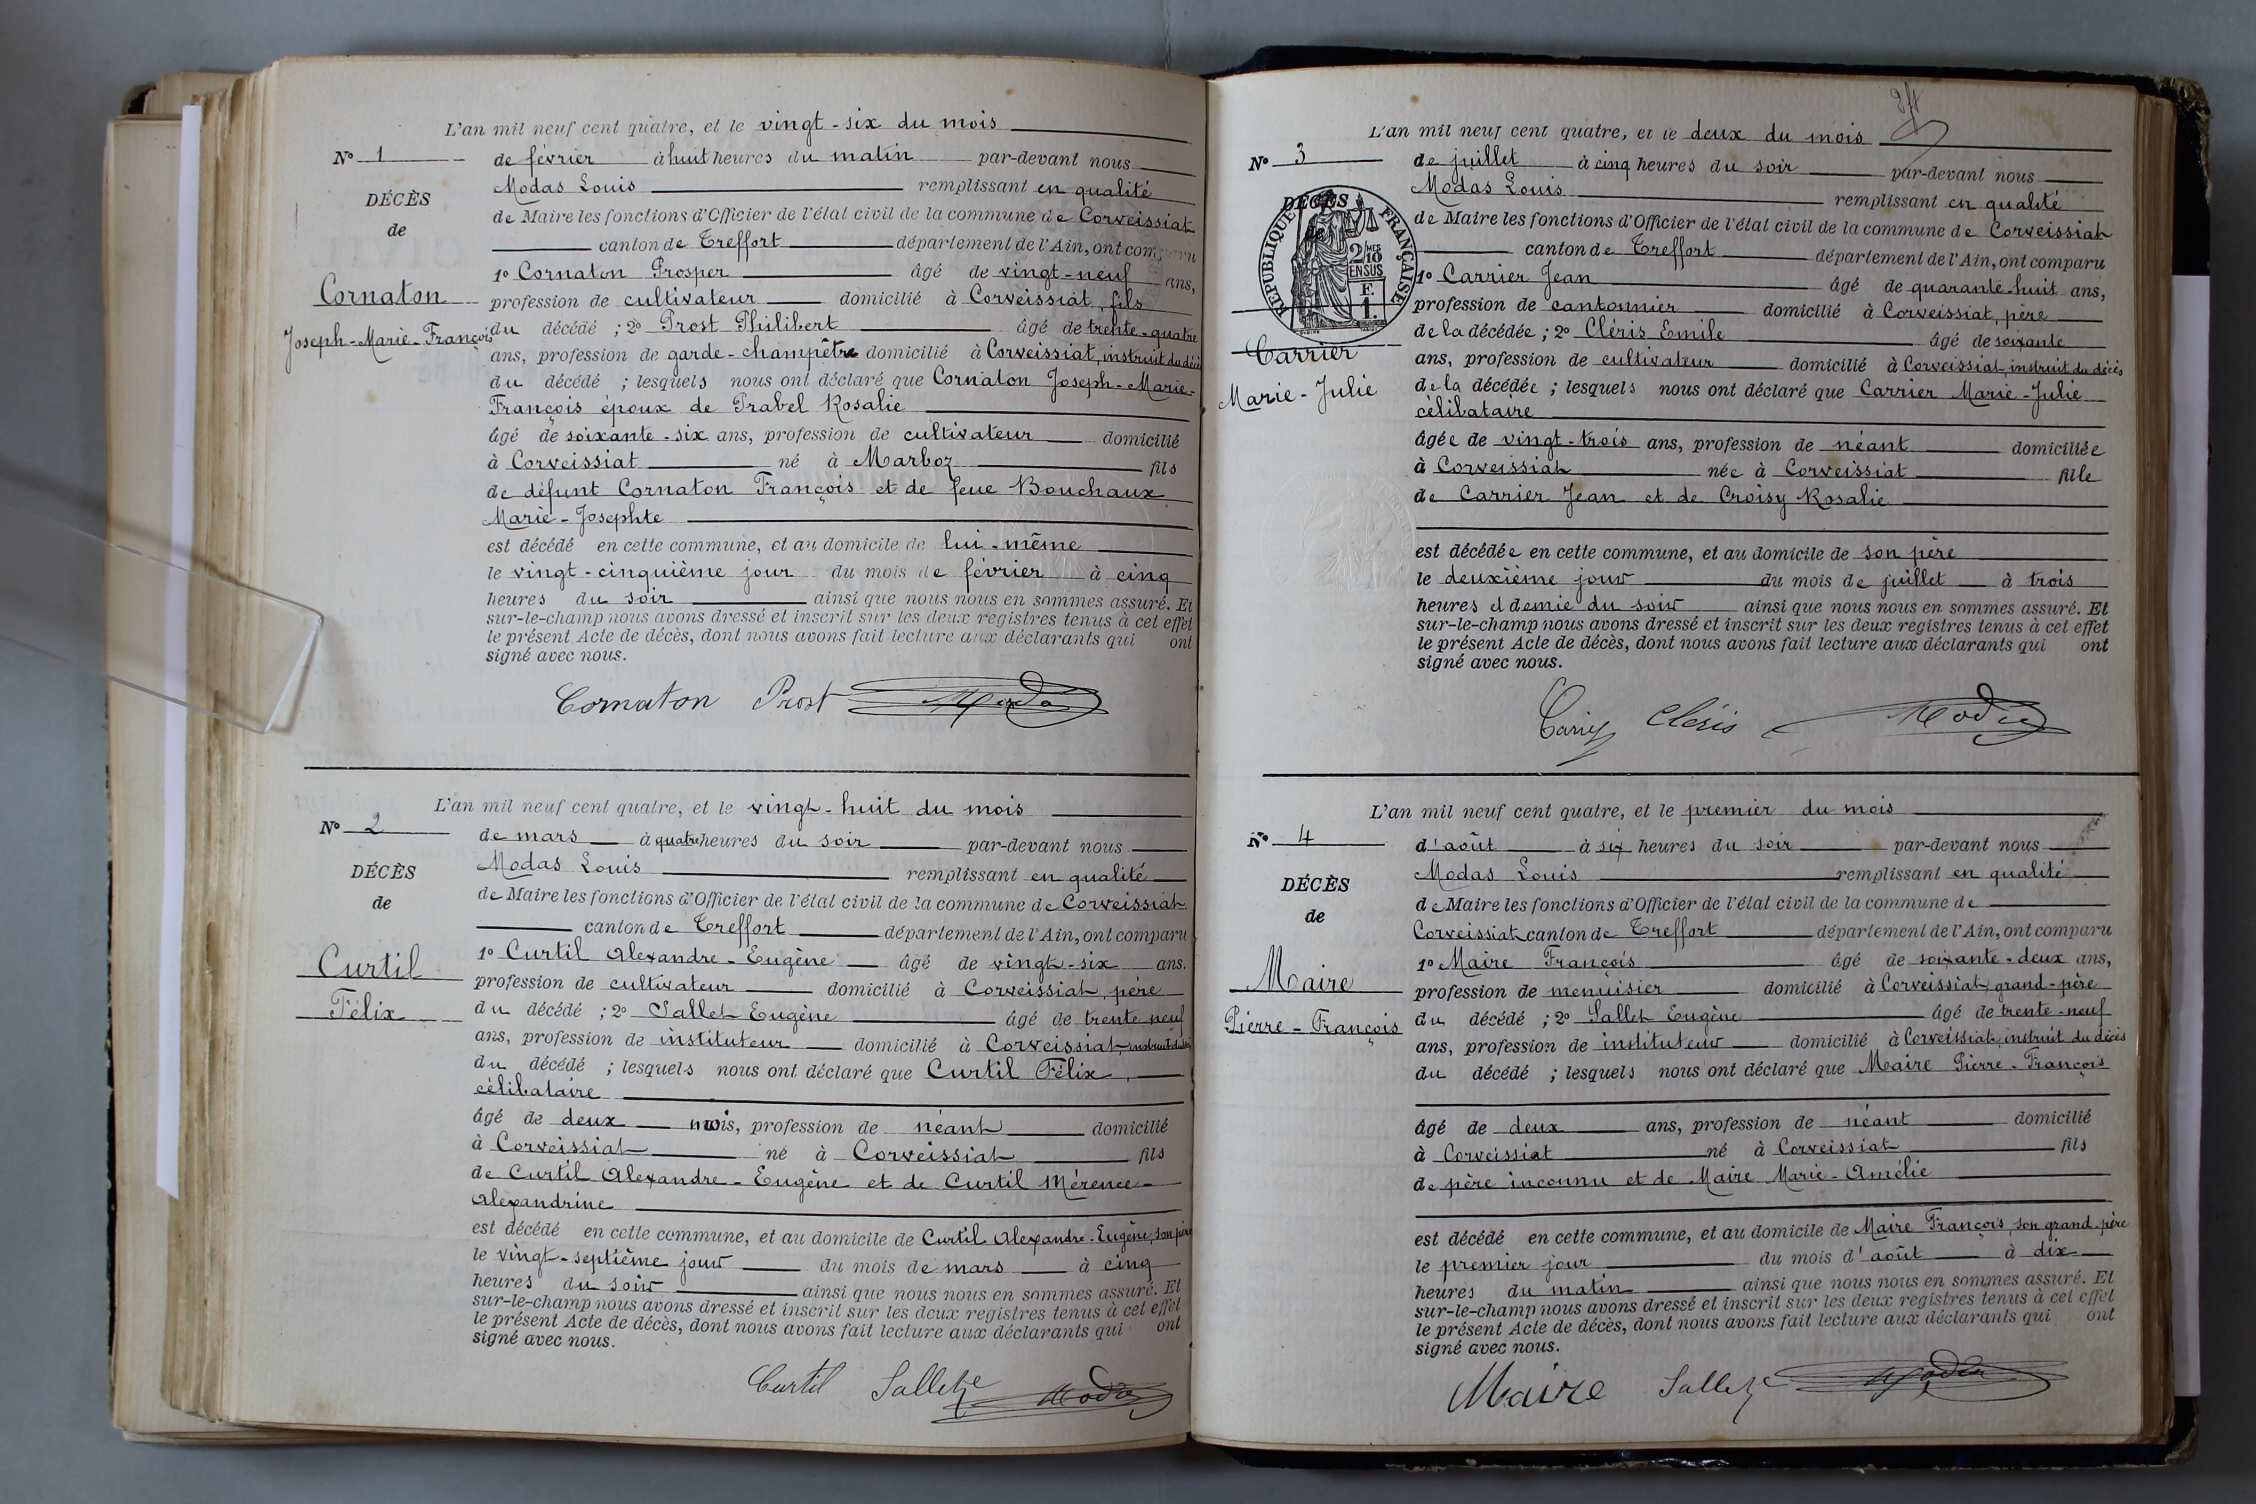 L'an mil neuf cent quatre, et le vingt-six du mois
N° 1
de février à huit heures du matin par-devant nous
Modas Louis remplissant en qualité
DÉCÈS
de Maire les fonctions d'Officier de l'état civil de la commune de Corveissiat
de
canton de Treffort département de l'Ain, ont comparu
1° Cornaton Prosper âgé de vingt-neuf ans,
Cornaton
profession de cultivateur domicilié à Corveissiat, fils
Joseph-Marie-François
du décédé ; 2° Prost Philibert âgé de trente-quatre
ans, profession de garde-champêtre domicilié à Corveissiat, instruit du décès
du décédé ; lesquels nous ont déclaré que Cornaton Joseph-Marie-
François époux de Prabel Rosalie
âgé de soixante-six ans, profession de cultivateur domicilié
à Corveissiat né à Marboz fils
de défunt Cornaton François et de feue Bouchaux
Marie-Josephte
est décédé en cette commune, et au domicile de lui-même
le vingt-cinquième jour du mois de février à cinq
heures du soir ainsi que nous nous en sommes assuré. Et
sur-le-champ nous avons dressé et inscrit sur les deux registres tenus à cet effet
le présent Acte de décès, dont nous avons fait lecture aux déclarants qui ont
signé avec nous.
Cornaton Prost Modas
L'an mil neuf cent quatre, et le vingt-huit du mois
N° 2
de mars à quatre heures du soir par-devant nous
Modas Louis remplissant en qualité
DÉCÈS
de Maire les fonctions d'Officier de l'état civil de la commune de Corveissiat
de
canton de Treffort département de l'Ain, ont comparu
1° Curtil Alexandre-Eugène âgé de vingt-six ans.
Curtil
profession de cultivateur domicilié à Corveissiat, père
Félix
du décédé ; 2° Sallet Eugène âgé de trente-neuf
ans, profession de instituteur domicilié à Corveissiat, instruit du décès
du décédé ; lesquels nous ont déclaré que Curtil Félix,
célibataire
âgé de deux mois, profession de néant domicilié
à Corveissiat né à Corveissiat fils
de Curtil Alexandre-Eugène et de Curtil Mérence-
Alexandrine
est décédé en cette commune, et au domicile de Curtil Alexandre-Eugène, son père
le vingt-septième jour du mois de mars à cinq
heures du soir ainsi que nous nous en sommes assuré. Et
sur-le-champ nous avons dressé et inscrit sur les deux registres tenus à cet effet
le présent Acte de décès, dont nous avons fait lecture aux déclarants qui ont
signé avec nous.
Curtil Sallet Modas
L'an mil neuf cent quatre, et le deux du mois
N° 3
de juillet à cinq heures du soir par-devant nous
Modas Louis remplissant en qualité
DÉCÈS
RÉPUBLIQUE FRANÇAISE
2/10 EN SUS
F.
1.
de Maire les fonctions d'Officier de l'état civil de la commune de Corveissiat
canton de Treffort département de l'Ain, ont comparu
1° Carrier Jean âgé de quarante-huit ans,
profession de cantonnier domicilié à Corveissiat, père
Carrier
de la décédée ; 2° Cléris Emile âgé de soixante
Marie-Julie
ans, profession de cultivateur domicilié à Corveissiat, instruit du décès
de la décédée ; lesquels nous ont déclaré que Carrier Marie-Julie
célibataire
âgée de vingt-trois ans, profession de néant domiciliée
à Corveissiat née à Corveissiat fille
de Carrier Jean et de Croisy Rosalie
est décédée en cette commune, et au domicile de son père
le deuxième jour du mois de juillet à trois
heures et demie du soir ainsi que nous nous en sommes assuré. Et
sur-le-champ nous avons dressé et inscrit sur les deux registres tenus à cet effet
le présent Acte de décès, dont nous avons fait lecture aux déclarants qui ont
signé avec nous.
Cléris Modas
L'an mil neuf cent quatre, et le premier du mois
N° 4
d'août à six heures du soir par-devant nous
Modas Louis remplissant en qualité
DÉCÈS
de Maire les fonctions d'Officier de l'état civil de la commune de
de
Corveissiat canton de Treffort département de l'Ain, ont comparu
1° Maire François âgé de soixante-deux ans,
Maire
profession de menuisier domicilié à Corveissiat, grand-père
Pierre-François
du décédé ; 2° Sallet Eugène âgé de trente-neuf
ans, profession de instituteur domicilié à Corveissiat, instruit du décès
du décédé ; lesquels nous ont déclaré que Maire Pierre-François
âgé de deux ans, profession de néant domicilié
à Corveissiat né à Corveissiat fils
de père inconnu et de Maire Marie-Amélie
est décédé en cette commune, et au domicile de Maire François, son grand-père
le premier jour du mois d'août à dix
heures du matin ainsi que nous nous en sommes assuré. Et
sur-le-champ nous avons dressé et inscrit sur les deux registres tenus à cet effet
le présent Acte de décès, dont nous avons fait lecture aux déclarants qui ont
signé avec nous.
Maire Sallet Modas